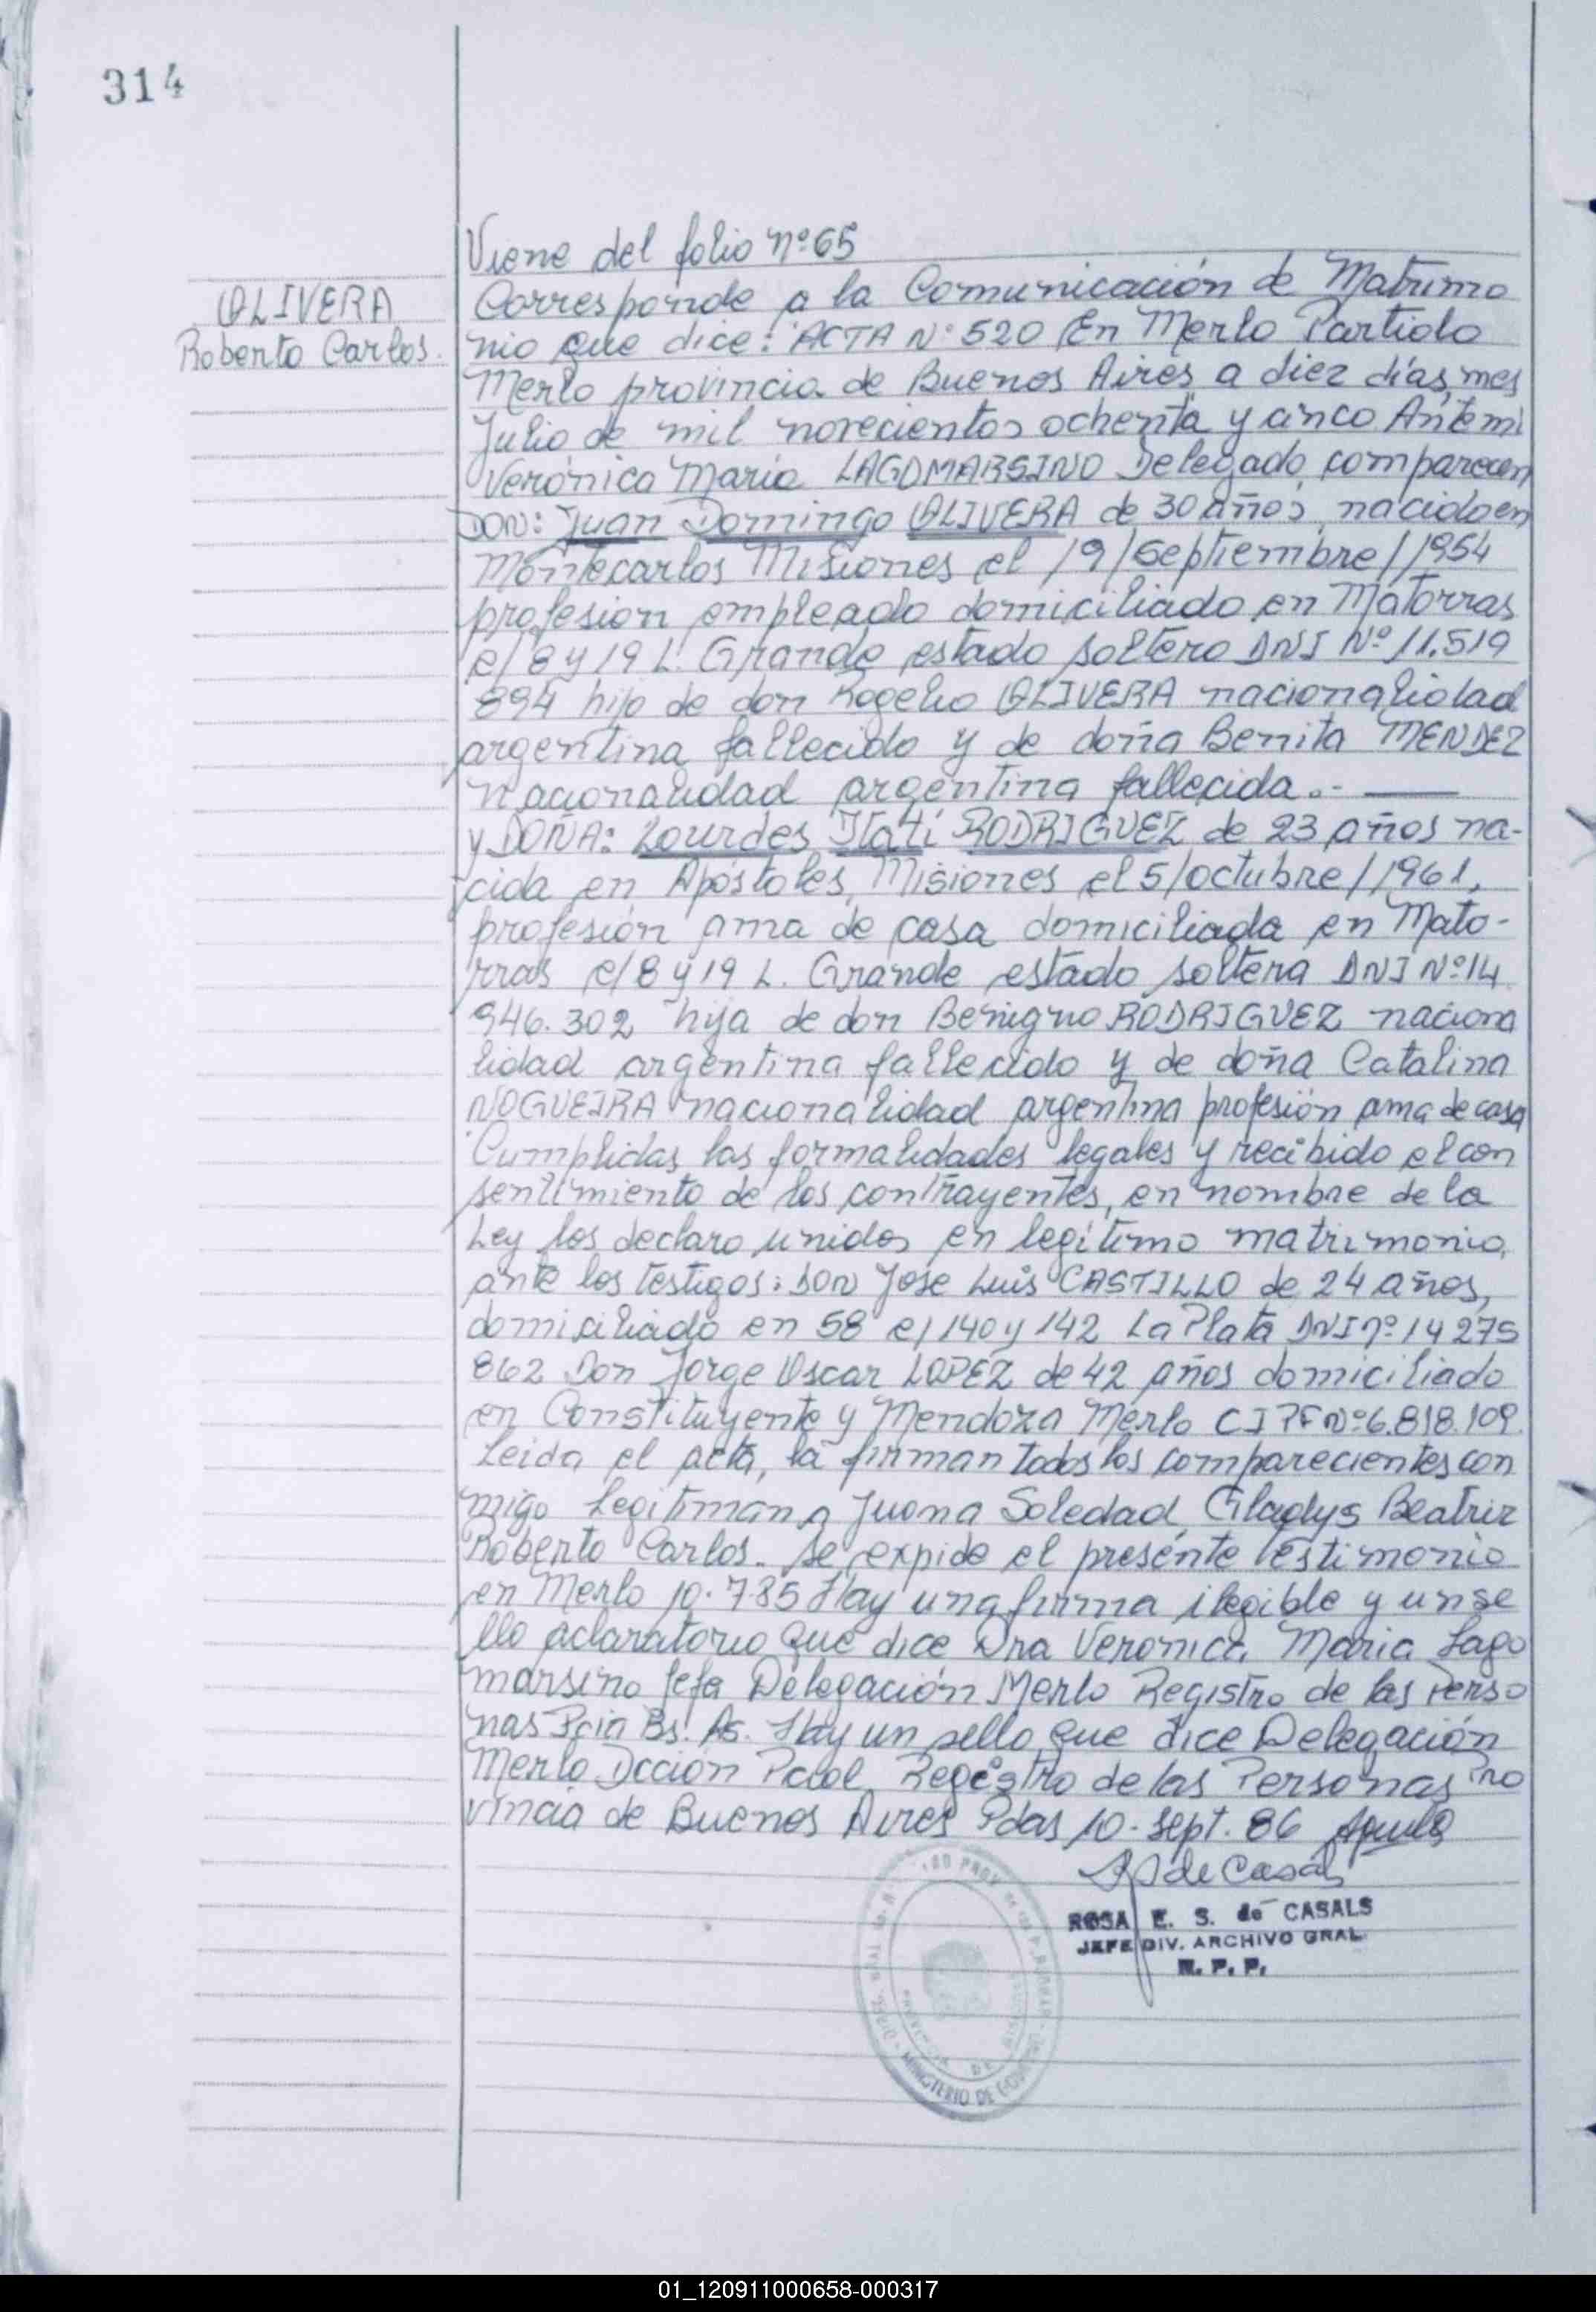 314
Viene del folio Nº 65
OLIVERA
Roberto Carlos.
Corresponde a la Comunicación de Matrimo
nio que dice: ACTA Nº 520 En Merlo Partido
Merlo provincia de Buenos Aires a diez días, mes
Julio de mil novecientos ochenta y cinco Ante mi
Verónica María LAGOMARSINO Delegado, comparecen
DON: Juan Domingo OLIVERA de 30 años, nacido en
Montecarlos Misiones el 19/Septiembre/1954
profesion empleado domiciliado en Matorras
e/ 8 y 19 L. Grande estado soltero DNI Nº 11.519
894 hijo de don Rogelio OLIVERA nacionalidad
argentina fallecido y de doña Benita MENDEZ
nacionalidad argentina fallecida.-
y DOÑA: Lourdes Itatí RODRIGUEZ de 23 años na-
cida en Apóstoles, Misiones el 5/octubre/1961,
profesión ama de casa domiciliada en Mato-
rras e/ 8 y 19 L. Grande estado soltera DNI Nº 14
946.302 hija de don Benigno RODRIGUEZ naciona
lidad argentina fallecido y de doña Catalina
NOGUEIRA nacionalidad argentina profesión ama de casa
Cumplidas las formalidades legales y recibido el con
sentimiento de los contrayentes, en nombre de la
Ley los declaro unidos en legítimo matrimonio,
ante los testigos: DON José Luis CASTILLO de 24 años,
domiciliado en 58 e/ 140 y 142 La Plata DNI nº 14 275
862 Don Jorge Oscar LOPEZ de 42 años domiciliado
en Constituyente y Mendoza Merlo CIPF Nº 6.818.109.
Leida el acta, la firman todos los comparecientes con
migo Legitiman a Juana Soledad, Gladys Beatriz
Roberto Carlos. Se expide el presente testimonio
en Merlo 10.7.85 Hay una firma ilegible y un se
llo aclaratorio que dice Dra Veronica Maria Lago
marsino Jefa Delegación Merlo Registro de las Perso
nas Pcia Bs. As. Hay un sello que dice Delegación
Merlo Dcción Pcial Registro de las Personas Pro
vincia de Buenos Aires Pdas 10 - Sept. 86
de Casals
ROSA E. S. de CASALS
JEFE DIV. ARCHIVO GRAL.
R. P. P.
MINISTERIO DE GOBIERNO
PROVINCIA DE MISIONES
01_120911000658-000317